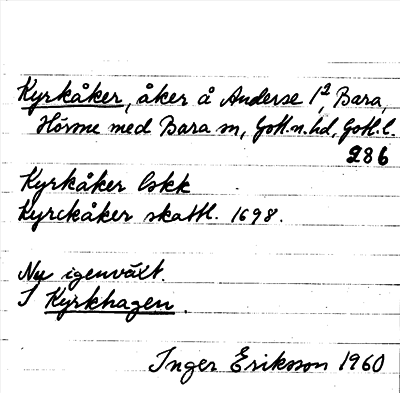 Kyrkåker, åker å Anderse 1², Bara,
Hörsne med Bara sn, Gotl.n.hd, Gotl.l.
286
Kyrkåker lskk
Kyrckåker skattl. 1698.
Nu igenväxt.
I Kyrkhagen.
Inger Eriksson 1960